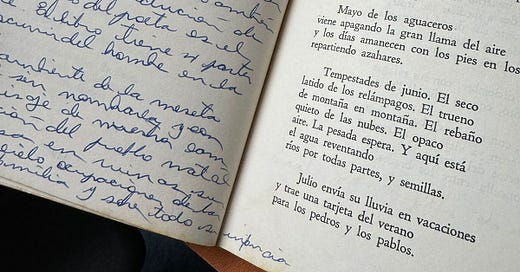 del poeta es el
El libro tiene su parte
del hombre en la
ambiente de la meseta
sin nombrarla, y con
de nuestra
del pueblo natal
en ruinas, su
familia y sobre todo su infancia
Mayo de los aguaceros
viene apagando la gran llama del aire
y los días amanecen con los pies en los
repartiendo azahares.
Tempestades de junio. El seco
latido de los relámpagos. El trueno
de montaña en montaña. El rebaño
quieto de las nubes. El opaco
aire. La pesada espera. Y aquí está
el agua reventando
ríos por todas partes, y semillas.
Julio envía su lluvia en vacaciones
y trae una tarjeta del verano
para los pedros y los pablos.